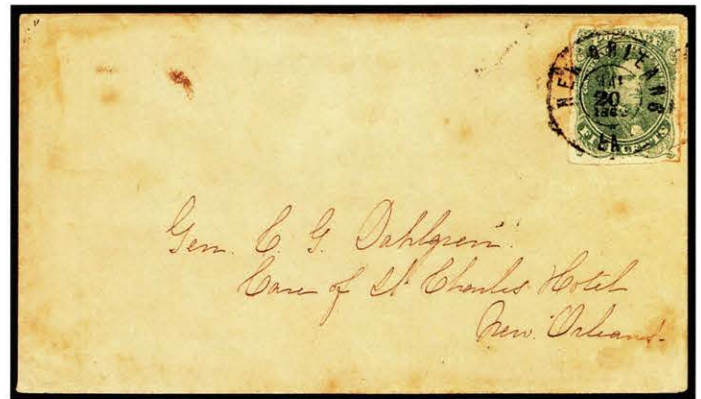 NEW ORLEANS
JAN
20
1862
LA
Gen. C. G. Dahlgren.
Care of St Charles Hotel
New Orleans.